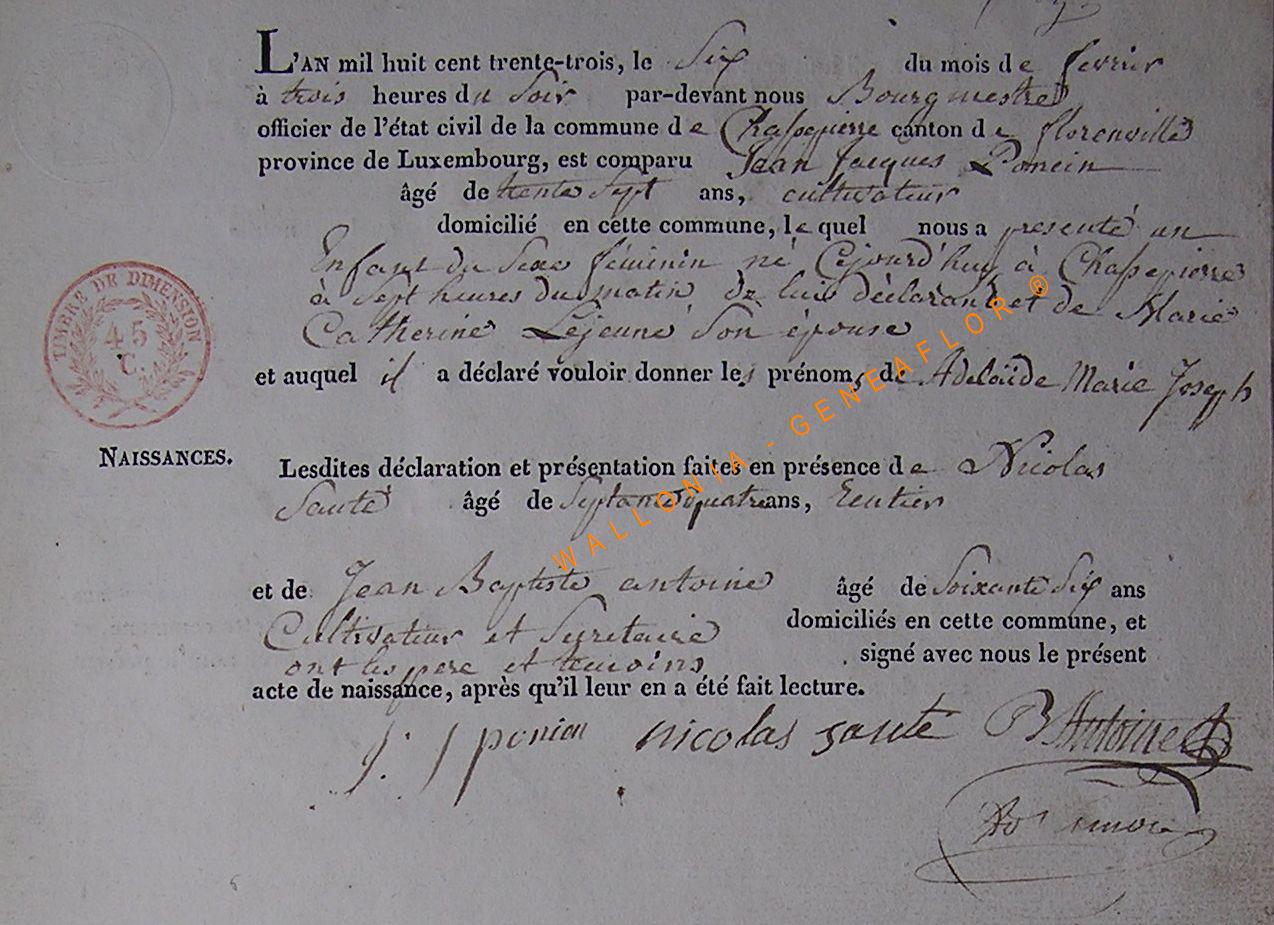 L'AN mil huit cent trente-trois, le Six du mois de fevrier
à trois heures du Soir par-devant nous Bourgmestre
officier de l'état civil de la commune de Chassepierre canton de florenville
province de Luxembourg, est comparu Jean Jacques Poncin
âgé de trente Sept ans, cultivateur
domicilié en cette commune, le quel nous a presenté un
Enfant du Sexe féminin né Cejourd'huy à Chassepierre
à Sept heures du matin de luis déclarant et de Marie
Catherine Lejeune Son épouse
et auquel il a déclaré vouloir donner les prénoms de Adelaïde Marie Joseph
TIMBRE DE DIMENSION
45
C.
NAISSANCES.
Lesdites déclaration et présentation faites en présence de Nicolas
Santé âgé de Septante quatre ans, Rentier
et de Jean Baptiste antoine âgé de Soixante Six ans
Cultivateur et Secretaire domiciliés en cette commune, et
ont les pere et temoins signé avec nous le présent
acte de naissance, après qu'il leur en a été fait lecture.
J. J poncin nicolas santé B Antoine
WALLONIA - GENEAFLOR ®